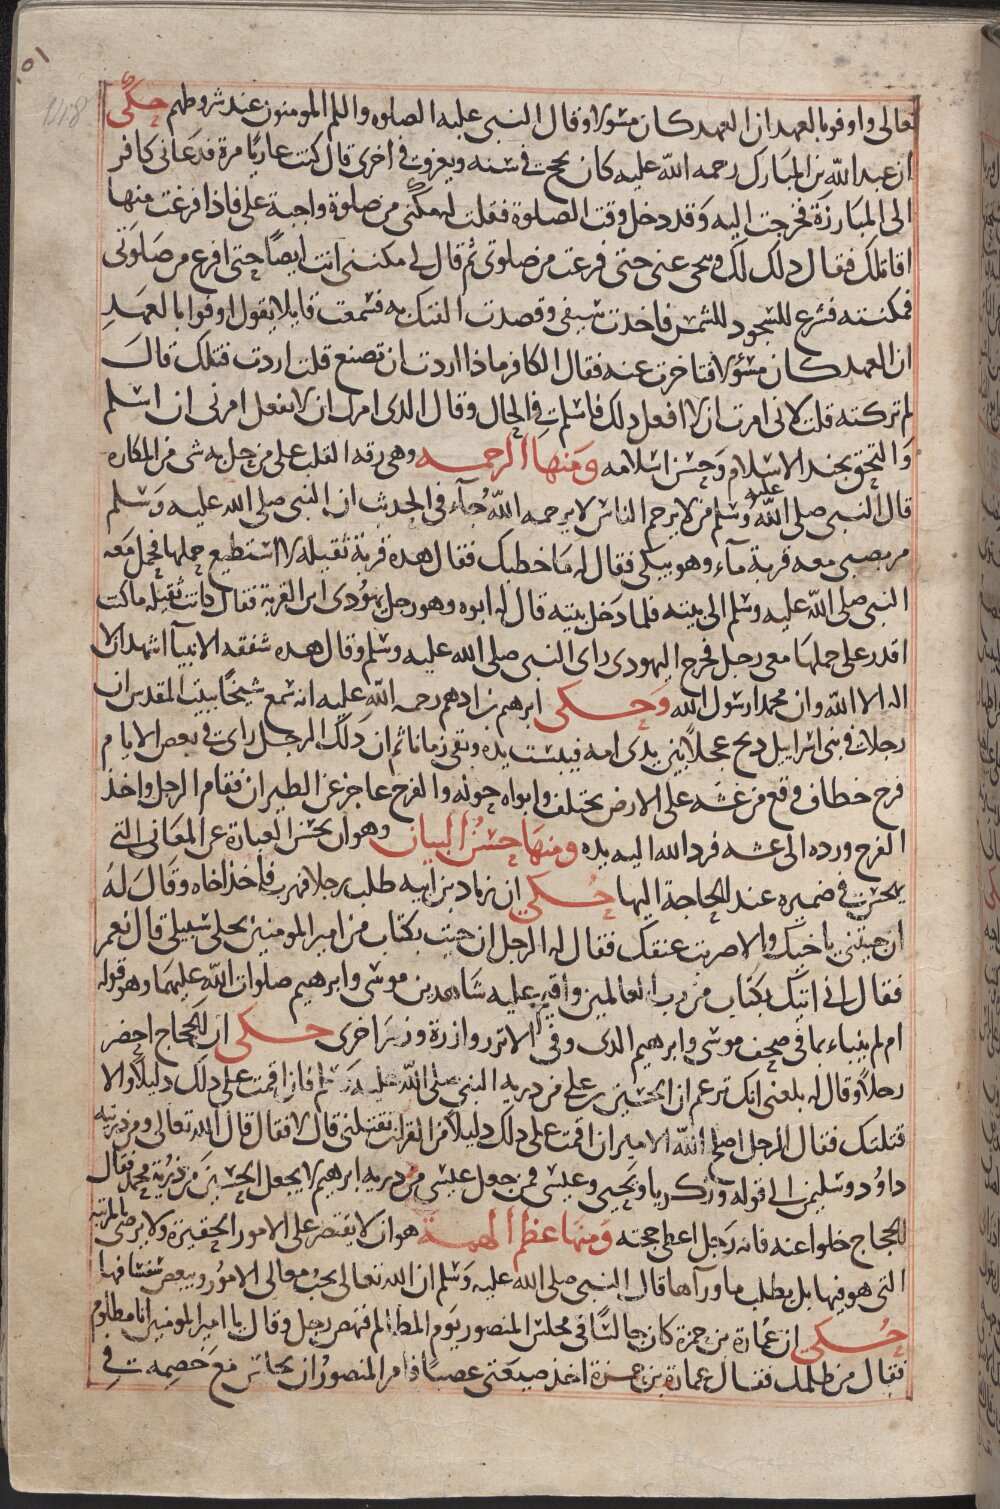 ١٥١
148
تعالى واوفوا بالعهد ان العهد كان مسؤلا وقال النبي عليه الصلوه والسلم المومنون عند شروطهم حكى
ان عبد الله بن المبارك رحمه الله عليه كان يحج في سنه ويغزوا في اخرى قال كنت غازيا مرة فدعاني كافر
الى المبارزة فخرجت اليه وقد دخل وقت الصلوة فقلت له مكني من صلوة واجبة علي فاذا فرغت منها
اقاتلك فقال ذلك لك وتنحى عني حتى فرغت من صلوتي ثم قال لي مكنني انت ايضا حتى افرغ من صلوتي
فمكنته فشرع للسجود للشمس فاخذت سيفي وقصدت الفتك به فسمعت قايلا يقول اوفوا بالعهد
ان العهد كان مسؤلا فتاخرت عنه فقال الكافر ماذا اردت ان تصنع قلت اردت قتلك قال
لم تركته قلت لاني امرت ان لا افعل ذلك فاسلم في الحال وقال الذى امرك ان لا تفعل امرني ان اسلم
والتحق بجند الاسلام وحسن اسلامه ومنها الرحمـه وهي رقه القلب على من حل به شى من المكاره
قال النبي صلى الله عليه وسلم من لا يرحم الناس لا يرحمه الله جآء في الحديث ان النبي صلى الله عليه وسلم
مر بصبي معه قربة مآء وهو يبكي فقال له ما خطبك فقال هذه قربة ثقيلة لا استطيع حملها فحمل معه
النبي صلى الله عليه وسلم الى بيته فلما دخل بيته قال له ابوه وهو رجل يهودى اين القربة فقال كانت ثقيله ما كنت
اقدر على حملها معي رجل فخرج اليهودي راى النبي صلى الله عليه وسلم وقال هذه شفقه الانبيآ اشهد ان لا
اله الا الله وان محمدا رسول الله وحـكى ابرهيم بن ادهم رحمه الله عليه انه سمع شيخا ببيت المقدس ان
رجلا من بنى اسراييل ذبح عجلا بين يدى امه فيبست يده وبقي زمانا ثم ان ذلك الرجل راى في بعض الايام
فرخ خطاف وقع من عشه على الارض يختلف وابواه حوله والفرخ عاجز عن الطيران فقام الرجل واخذ
الفرخ ورده الى عشه فرد الله اليه يده ومنها حسن البيان وهو ان يحسن العبارة عن المعاني التي
يحسن في ضميره عند الحاجة اليها حـكي ان زياد بن ابيه طلب رجلا فهرب فأخذ اخاه وقال له
ان جيتني باخيك والا ضربت عنقك فقال له الرجل ان جيت بكتاب من امير المومنين يخلى سبيلي قال نعم
فقال اني اتيك بكتاب من رب العالمين واقيم عليه شاهدين موسى وابرهيم صلوات الله عليهما وهو قوله
ام لم ينباء بما في صحف موسى وابرهيم الذى وفى الا تزر وازرة وزر اخرى حـكى ان الحجاج احضر
رجلا وقال له بلغني انك تزعم ان الحسين بن علي من ذريه النبي صلى الله عليه وسلم فان اقمت على ذلك دليلا والا
قتلتك فقال الرجل اصلح الله الامير ان اقمت على ذلك دليلا من القران تقتلنى قال لا فقال قال الله تعالى ومن ذريته
داود وسليمن الى قوله وزكريا ويحيى وعيسى فمن جعل عيسى من ذريه ابرهيم لا يجعل الحسين من ذرية محمد فقال
الحجاج خلوا عنه فانه رجل اعطى حجته ومنها عظم الهمـة هو ان لا يقتصر على الامور الحقيرة ولا يرضى بالمرتبه
التى هو فيها بل يطلب ما ورآها قال النبي صلى الله عليه وسلم ان الله تعالى يحب معالي الامور ويبغض سفسافها
حـكى ان عمارة بن حمزة كان جالسا في مجلس المنصور يوم المظالم فنهض رجل وقال يا امير المومنين انا مظلوم
فقال من ظلمك فقال عمارة بن حمزة اخذ ضيعتى غصبا فامر المنصور ان يجلس مع خصمه في